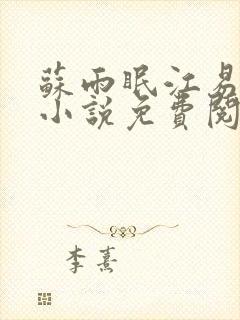 蘇雨眠江易
小說免費閱
李熹